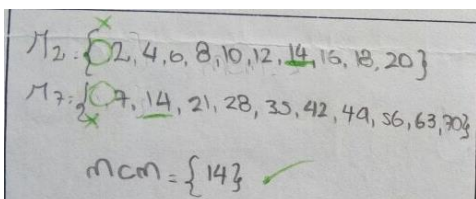 M2: {0 2, 4, 6, 8, 10, 12, 14, 16, 18, 20}
M7: {0 7, 14, 21, 28, 35, 42, 49, 56, 63, 70}
mcm = {14}